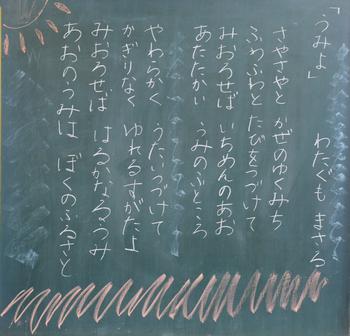 「うみよ」　わたぐも まさる
さやさやと　かぜのゆくみち
ふわふわと　たびをつづけて
みおろせば　いちめんのあお
あたたかい　うみのふところ
やわらかく　うたいつづけて
かぎりなく　ゆれるすがたよ
みおろせば　はるかなるうみ
あおのうみは　ぼくのふるさと